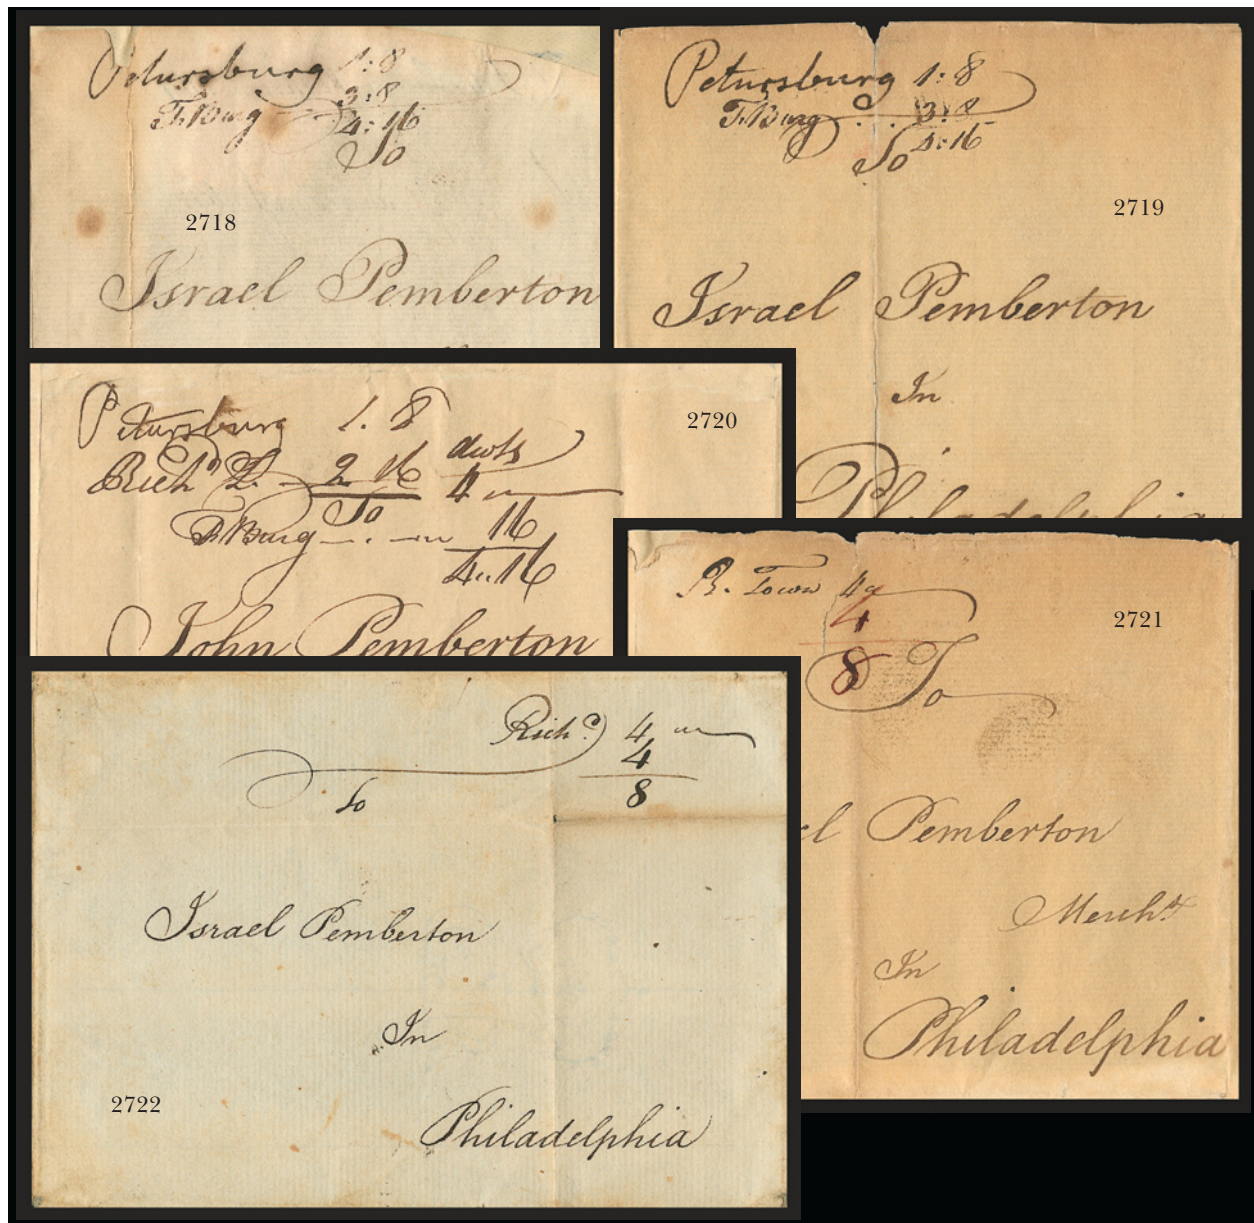 Petursburg 1:8
3:8
F.Burg
4:16
To
2718
Israel Pemberton
Petursburg 1:8
F.Burg 3:8
4:16
To
2719
Israel Pemberton
In
Philadelphia
Petursburg 1.8
dwts
2720
Richd 2 16 4
To
F.Burg 16
4 16
John Pemberton
Town 4
4
2721
8
To
Pemberton
Mercht
In
Philadelphia
Richd 4
4
8
To
Israel Pemberton
In
2722
Philadelphia